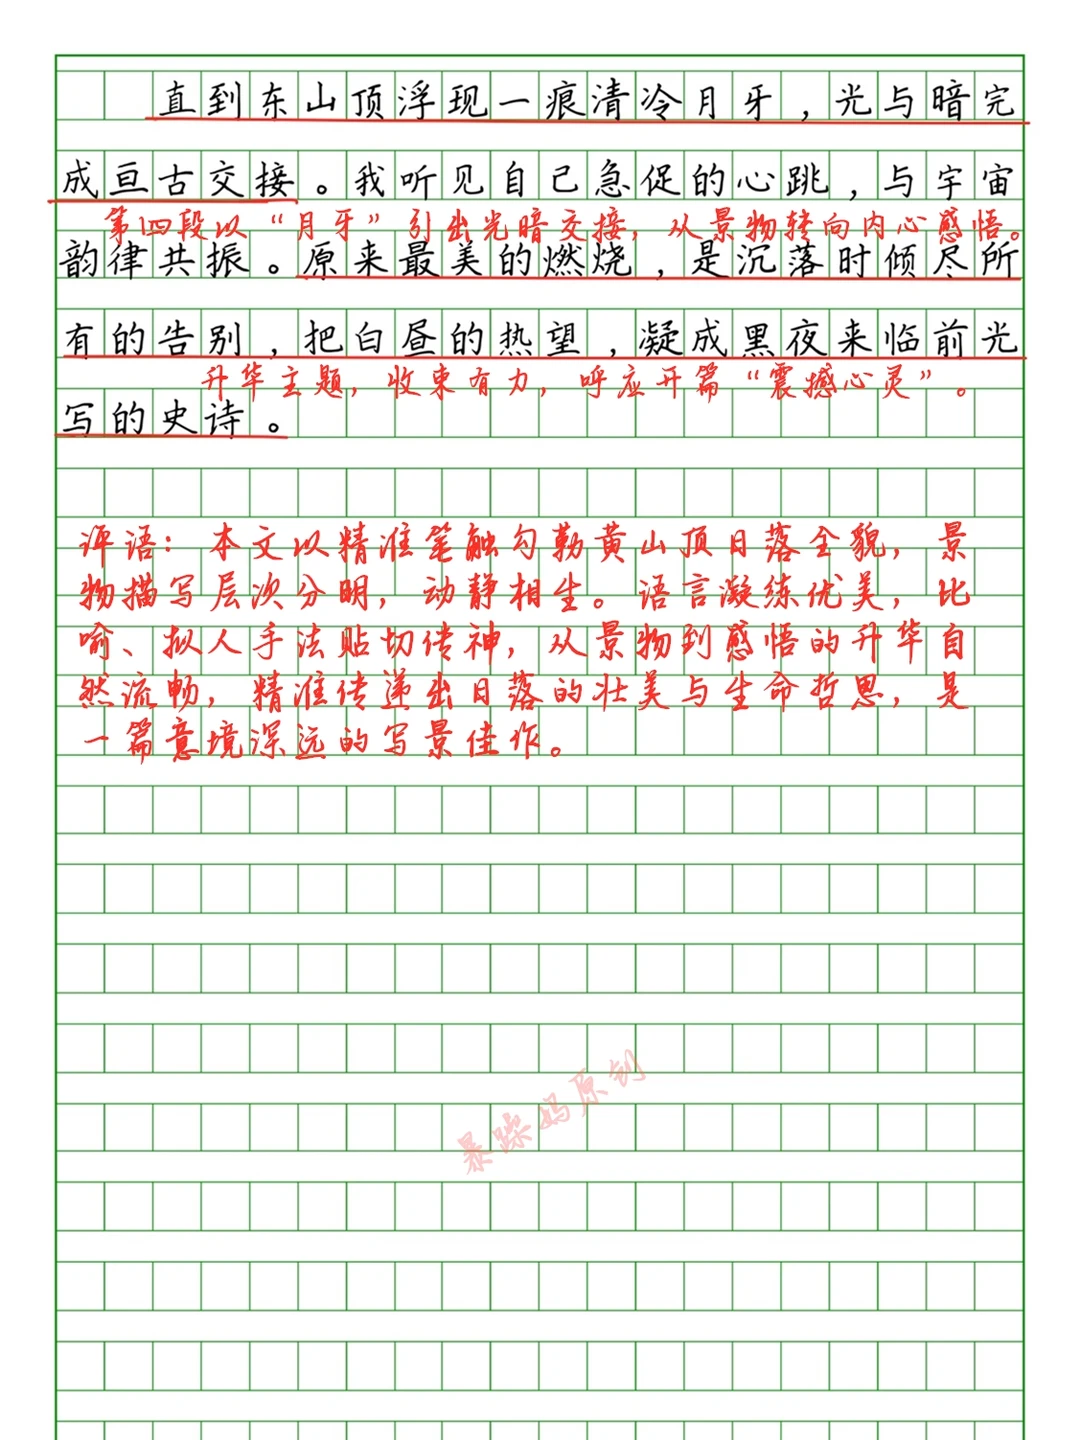 直到东山顶浮现一痕清冷月牙，光与暗完
成亘古交接。我听见自己急促的心跳，与宇宙
第四段以“月牙”引出光暗交接，从景物转向内心感悟。
韵律共振。原来最美的燃烧，是沉落时倾尽所
有的告别，把白昼的热望，凝成黑夜来临前光
升华主题，收束有力，呼应开篇“震撼心灵”。
写的史诗。
评语：本文以精准笔触勾勒黄山顶日落全貌，景
物描写层次分明，动静相生。语言凝练优美，比
喻、拟人手法贴切传神，从景物到感悟的升华自
然流畅，精准传递出日落的壮美与生命哲思，是
一篇意境深远的写景佳作。
暴躁妈原创